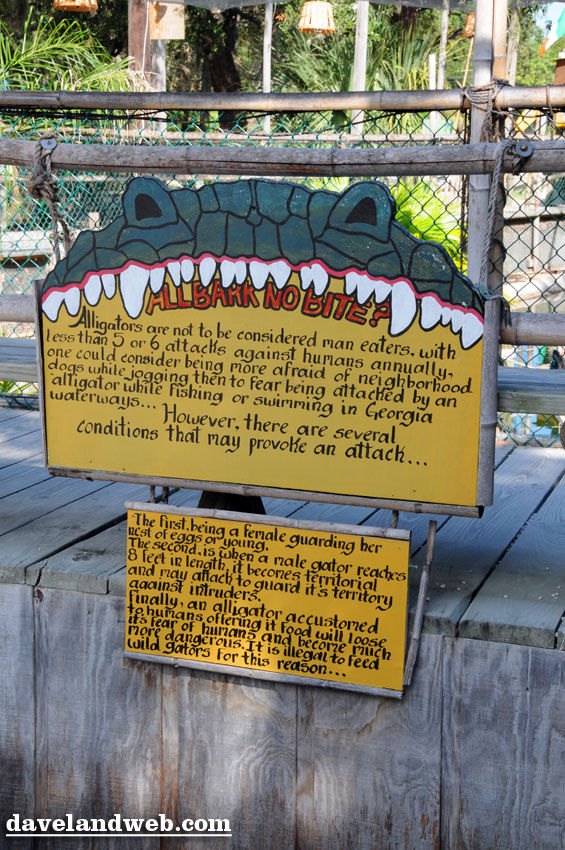 ALL BARK NO BITE?
Alligators are not to be considered man eaters, with
less than 5 or 6 attacks against humans annually,
one could consider being more afraid of neighborhood
dogs while jogging then to fear being attacked by an
alligator while fishing or swimming in Georgia
waterways... However, there are several
conditions that may provoke an attack...
The first, being a female guarding her
nest of eggs or young.
The second, is when a male gator reaches
8 feet in length, it becomes territorial
and may attack to guard it's territory
against intruders.
Finally, an alligator accustomed
to humans offering it food will loose
it's fear of humans and become much
more dangerous. It is illegal to feed
wild gators for this reason...
davelandweb.com